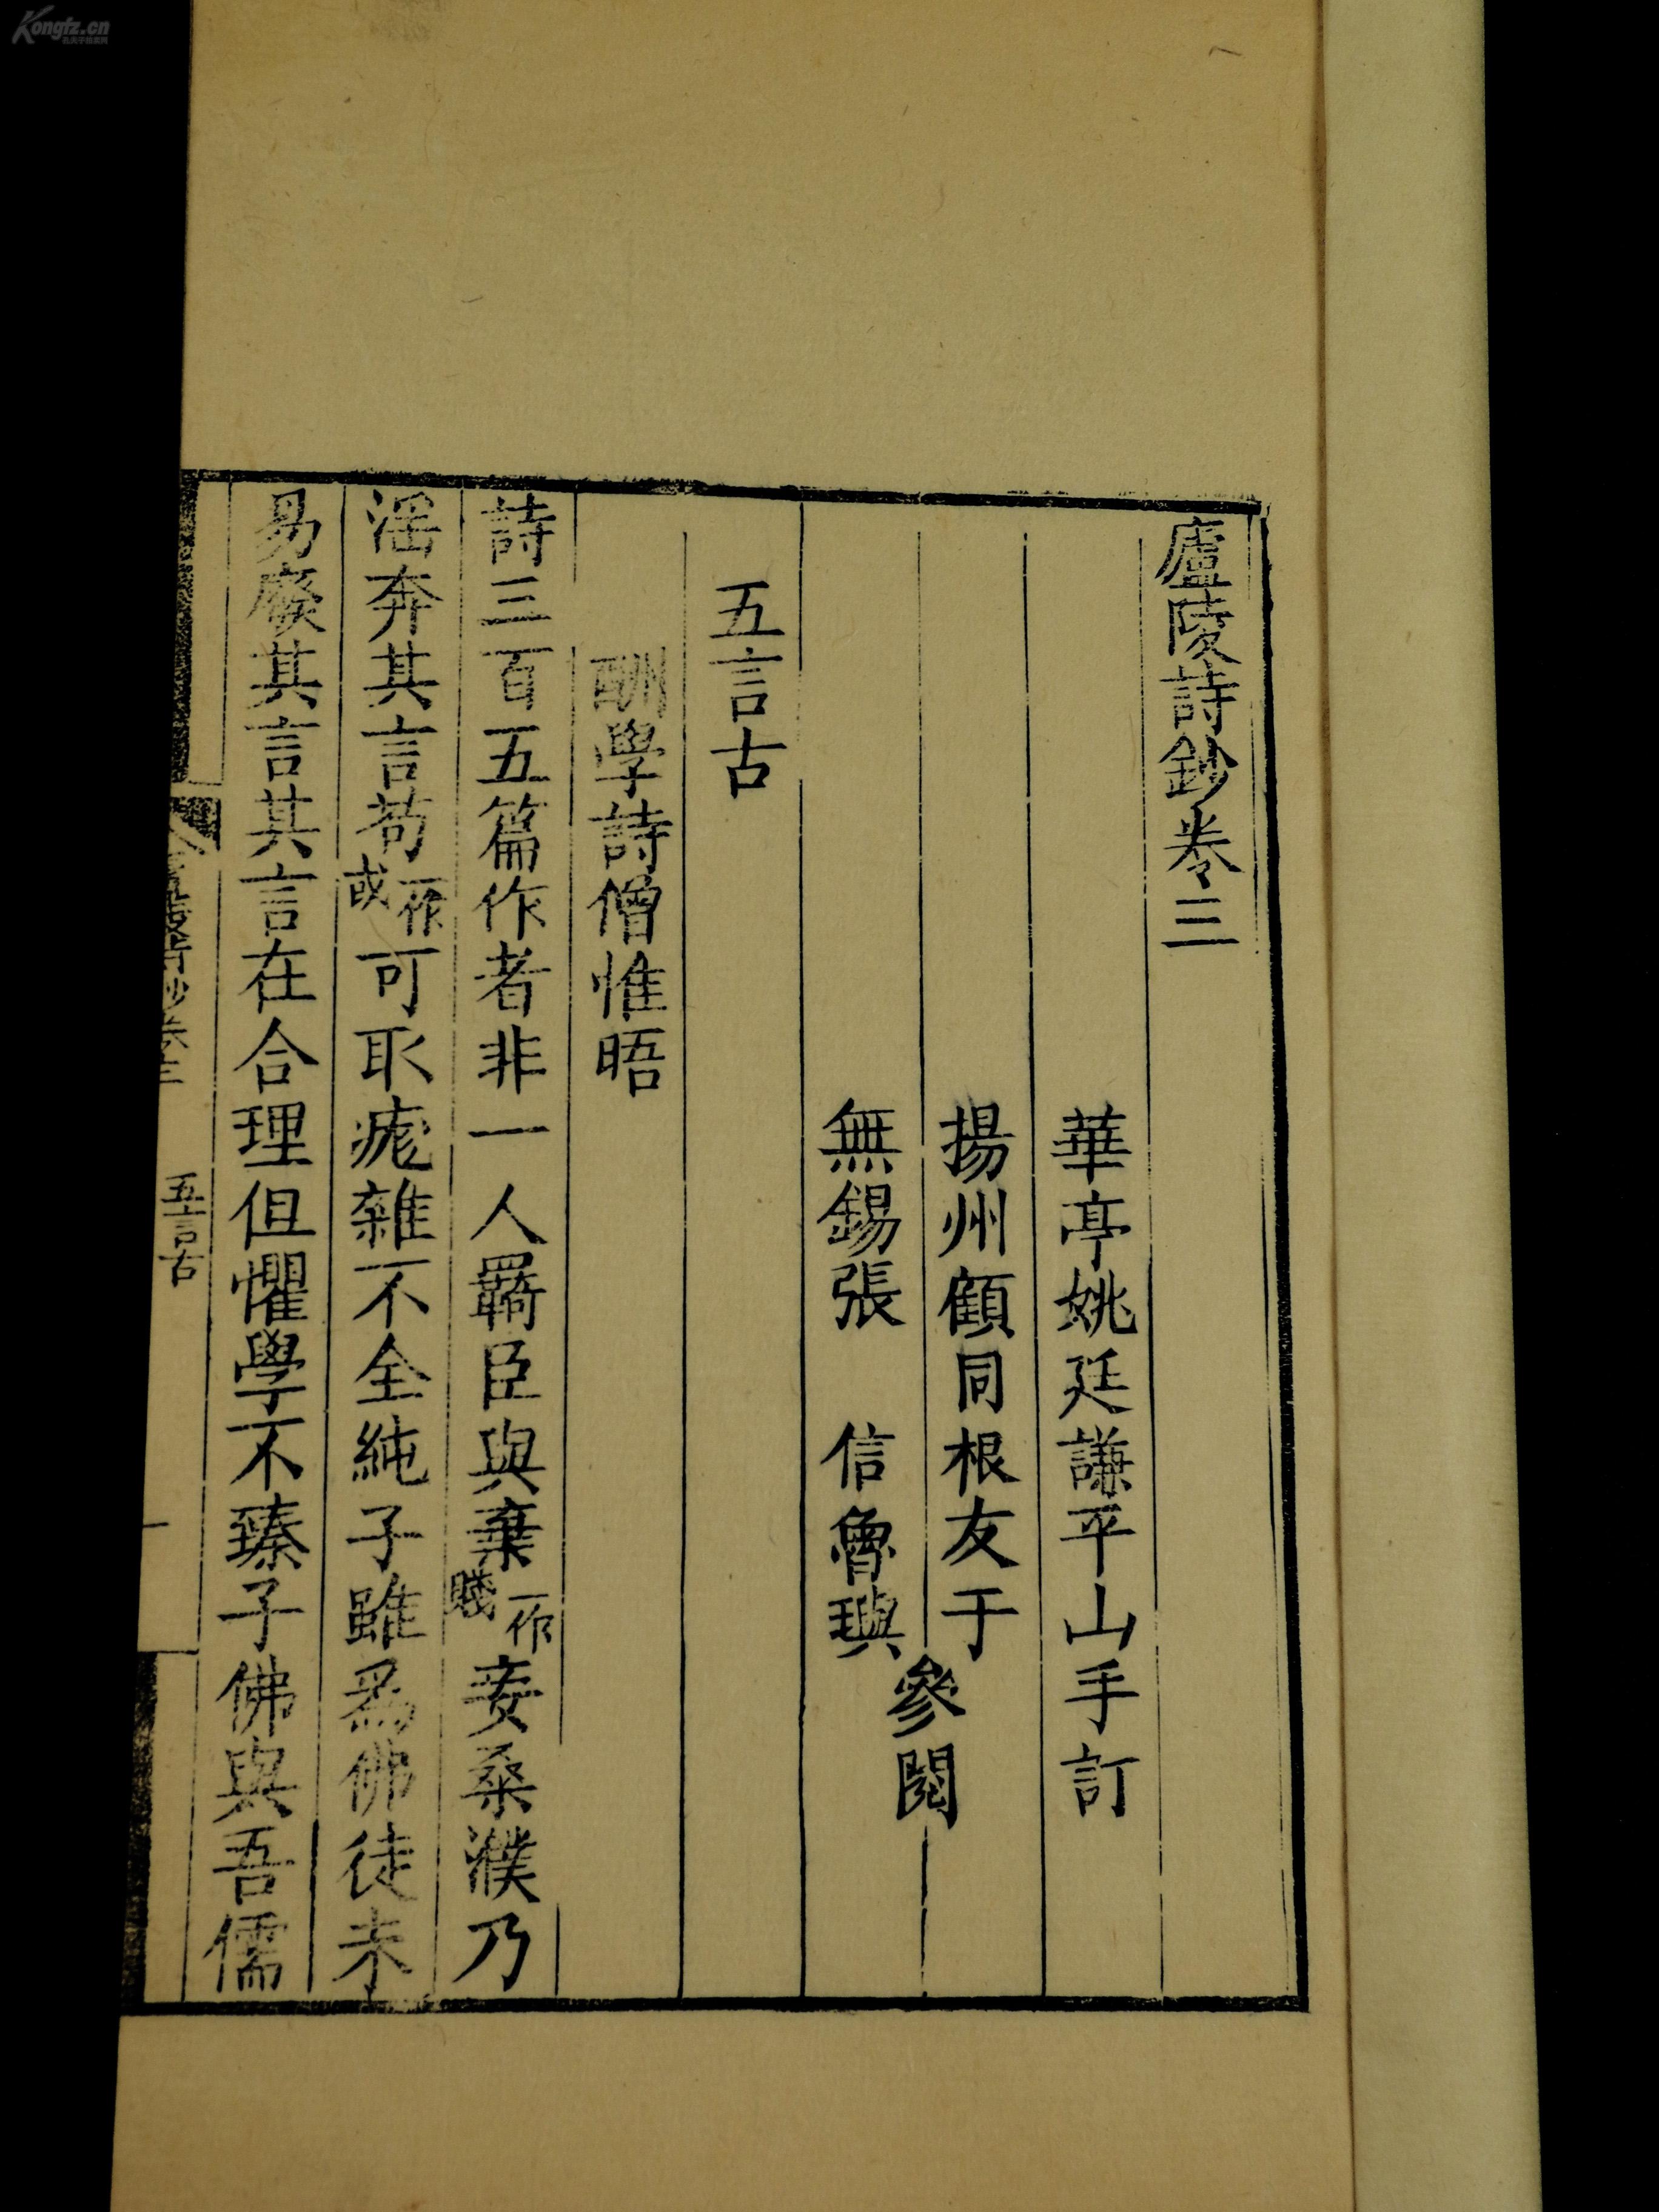 廬陵詩鈔卷三
華亭姚廷謙平山手訂
揚州顧同根友于
無錫張　信魯璵
參閱
五言古
酬學詩僧惟晤
詩三百五篇作者非一人羇臣與棄一作賤妾桑濮乃
淫奔其言苟一作或可取疵雜不全純子雖爲佛徒未
易廢其言其言在合理但懼學不臻子佛與吾儒
五言古
一
Kongfz.cn